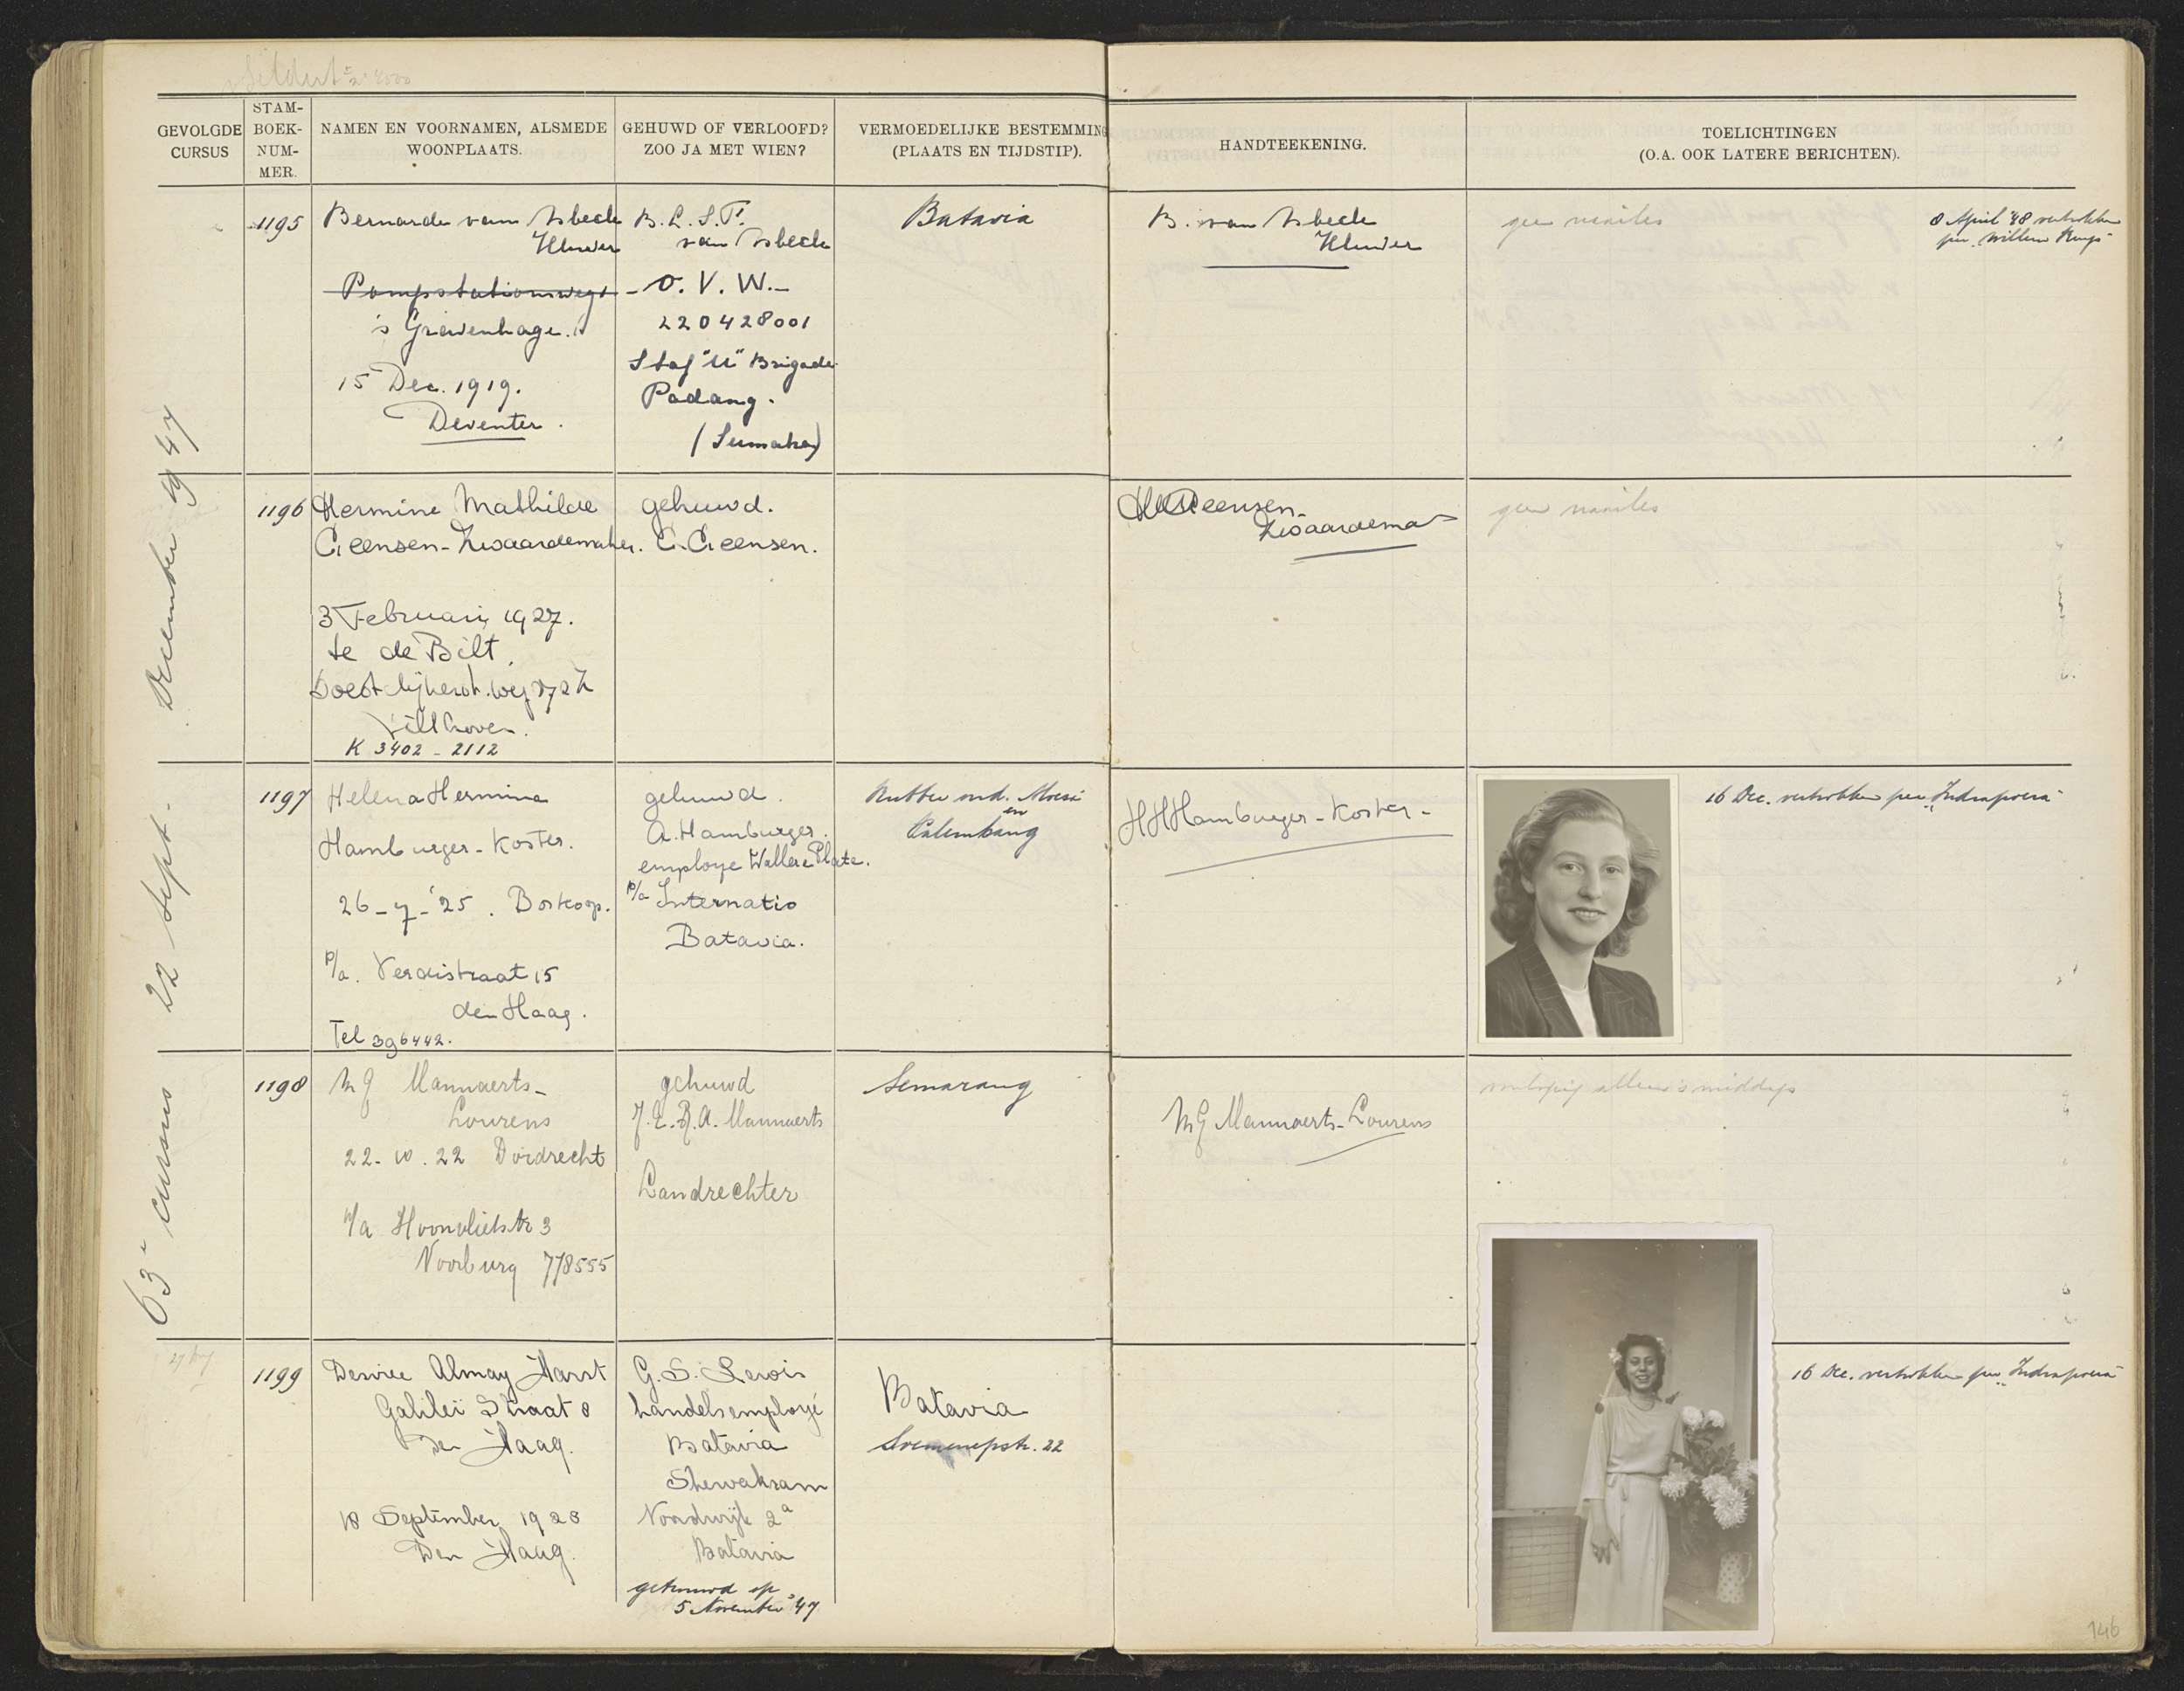 GEVOLGDE CURSUS
STAM-BOEK-NUM-MER.
NAMEN EN VOORNAMEN, ALSMEDE WOONPLAATS.
GEHUWD OF VERLOOFD? ZOO JA MET WIEN?
VERMOEDELIJKE BESTEMMING (PLAATS EN TIJDSTIP).
HANDTEEKENING.
TOELICHTINGEN (O.A. OOK LATERE BERICHTEN).
63e cursus 22 Sept. - December 1947
1195
Bernarde van
's Gravenhage.
15 Dec. 1919.
Deventer.
B. L. S. T.
van
O. V. W.
220428001
Staf "U" Brigade
Padang.
(Sumatra)
Batavia
B. van
geen
8 April '48 vertrokken
per "Willem Ruys"
1196
Hermine Mathilde
Creensen-Zwaardemaker.
3 Februari 1927.
te de Bilt.
Bilthoven.
K 3402 - 2112
gehuwd.
C. Creensen.
Creensen-
Zwaardema
geen
1197
Helena Hermina
Hamburger-Koster.
26-7-'25. Boskoop.
p/a. Verdistraat 15
den Haag.
Tel 396442.
gehuwd.
A. Hamburger.
employe Waller & Plate.
p/a Internatio
Batavia.
Rubber ond. Moesi
en
Palembang
HHHamburger-Koster-
16 Dec. vertrokken per "Indrapoera"
1198
MG Mannaerts-
Lourens
22-10.22 Dordrecht
p/a Hoonvlietstr 3
Voorburg 778555
gehuwd
J.E.R.A. Mannaerts
Landrechter
Semarang
MG Mannaerts-Lourens
voorlopig alleen 's middags
1199
Desirée Almay Harst
Galilei Straat 8
Den Haag.
18 September 1928
Den Haag.
G.S. Lewis
handelsemployé
Batavia
Shewakram
Noordwijk 2a
Batavia
getrouwd op
5 November '47
Batavia
Soemenepstr. 22
16 Dec. vertrokken per "Indrapoera"
146